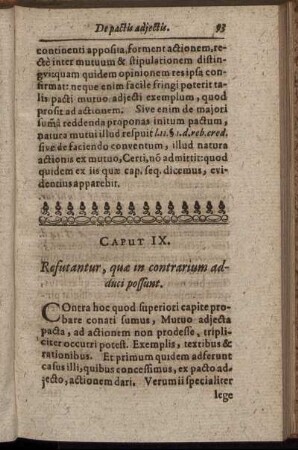 De pactis adjectis. 93
continenti apposita, forment actionem, re-
ctè inter mutuum & stipulationem distin-
guit: quam quidem opinionem res ipsa con-
firmat: neque enim facile fringi poterit ta-
lis pacti mutuo adjecti exemplum, quod
profit ad actionem. Sive enim de majori
summa reddenda proponas initum pactum,
natura mutui illud respuit l.11.§1.d.reb.cred.
sive de faciendo conventum, illud natura
actionis ex mutuo, Certi, nō admittit: quod
quidem ex iis quæ cap. seq. dicemus, evi-
dentius apparebit.
CAPUT IX.
Refutantur, quæ in contrarium ad-
duci possunt.
COntra hoc quod superiori capite pro-
bare conati sumus, Mutuo adjecta
pacta, ad actionem non prodesse, tripli-
citer occurri potest. Exemplis, textibus &
rationibus. Et primum quidem adferunt
casus illi, quibus concessimus, ex pacto ad-
jecto, actionem dari. Verum ii specialiter
lege